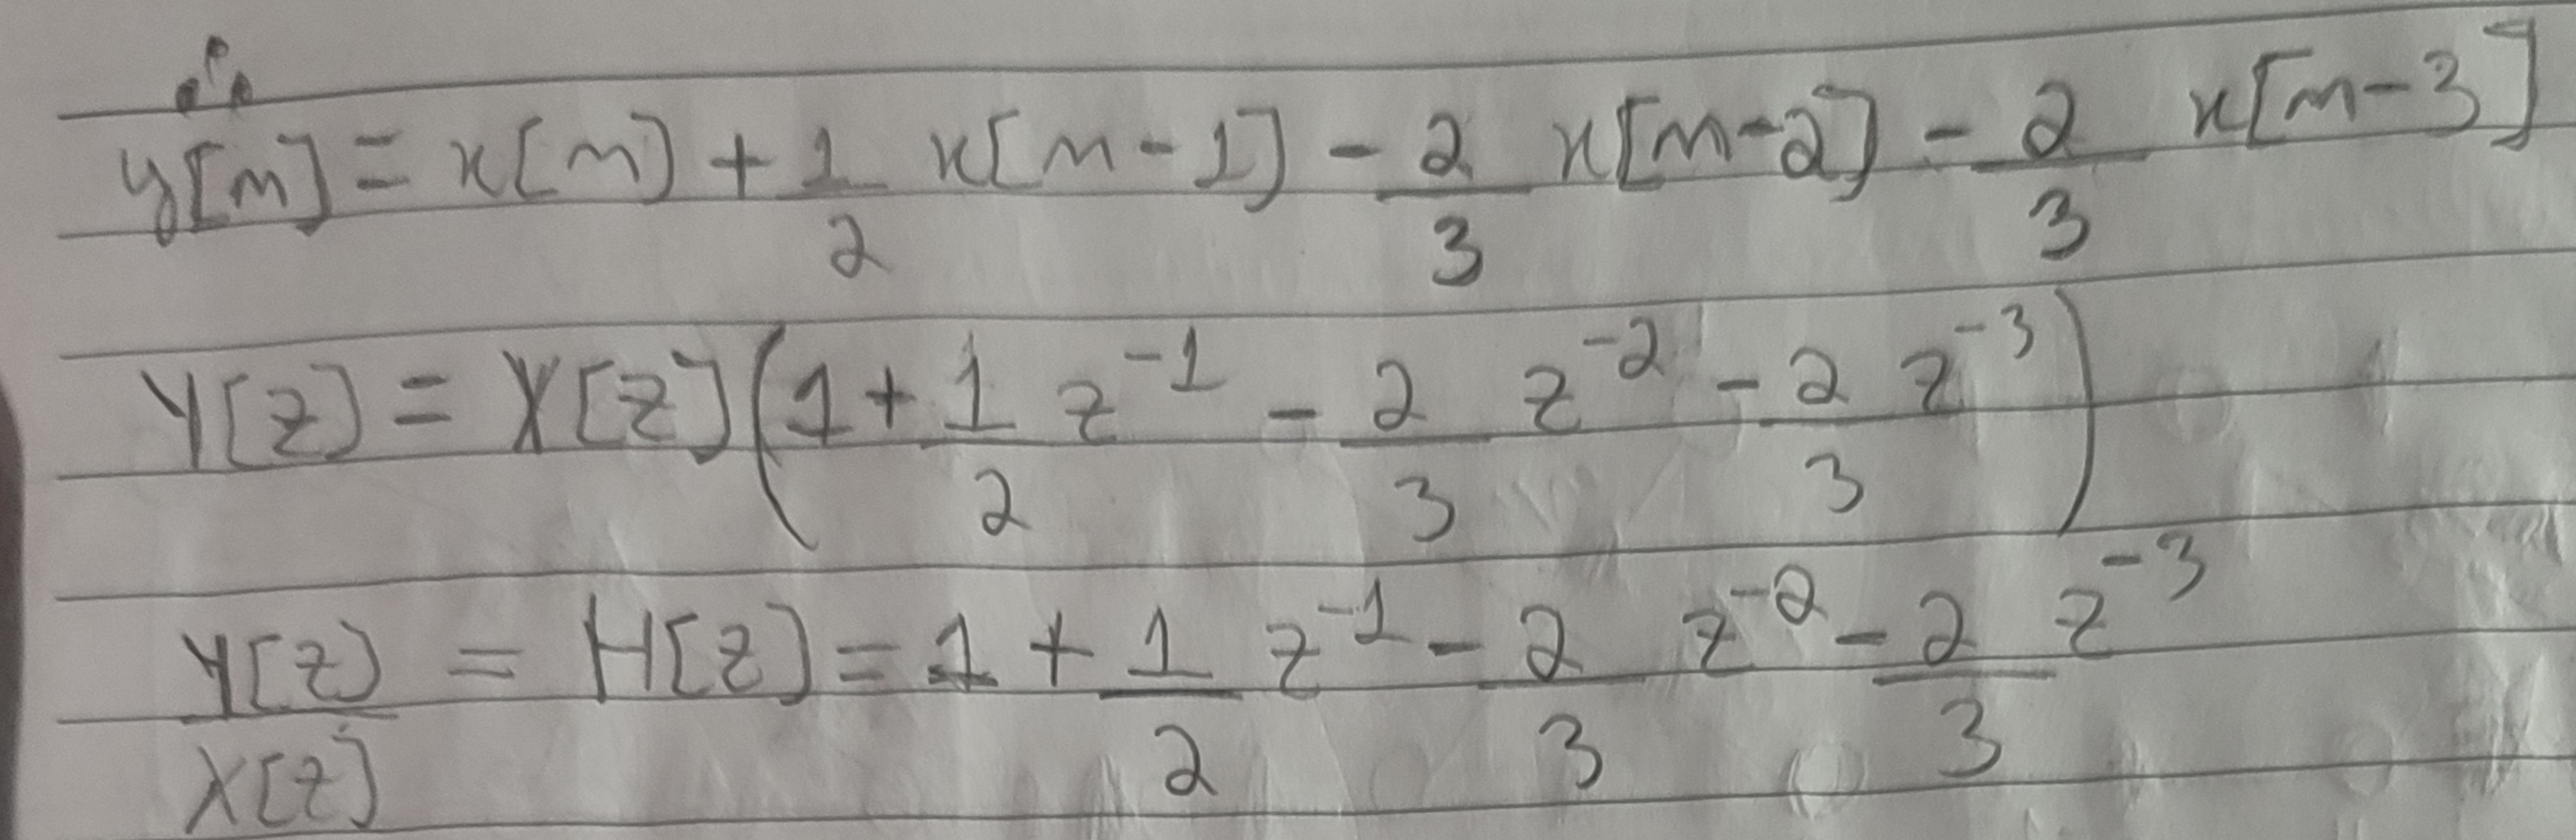 ∴
y[n] = x[n] + 1/2 x[n-1] - 2/3 x[n-2] - 2/3 x[n-3]
Y[z] = X[z] (1 + 1/2 z^-1 - 2/3 z^-2 - 2/3 z^-3)
Y[z]/X[z] = H[z] = 1 + 1/2 z^-1 - 2/3 z^-2 - 2/3 z^-3